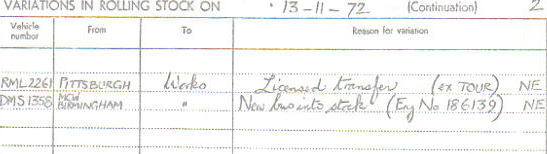 VARIATIONS IN ROLLING STOCK ON 13-11-72 (Continuation) 2
Vehicle number From To Reason for variation
RML2261 PITTSBURGH Works Licensed transfer (ex TOUR) NE
DMS1358 MCW BIRMINGHAM " New bus into stock (Eng No 186139) NE